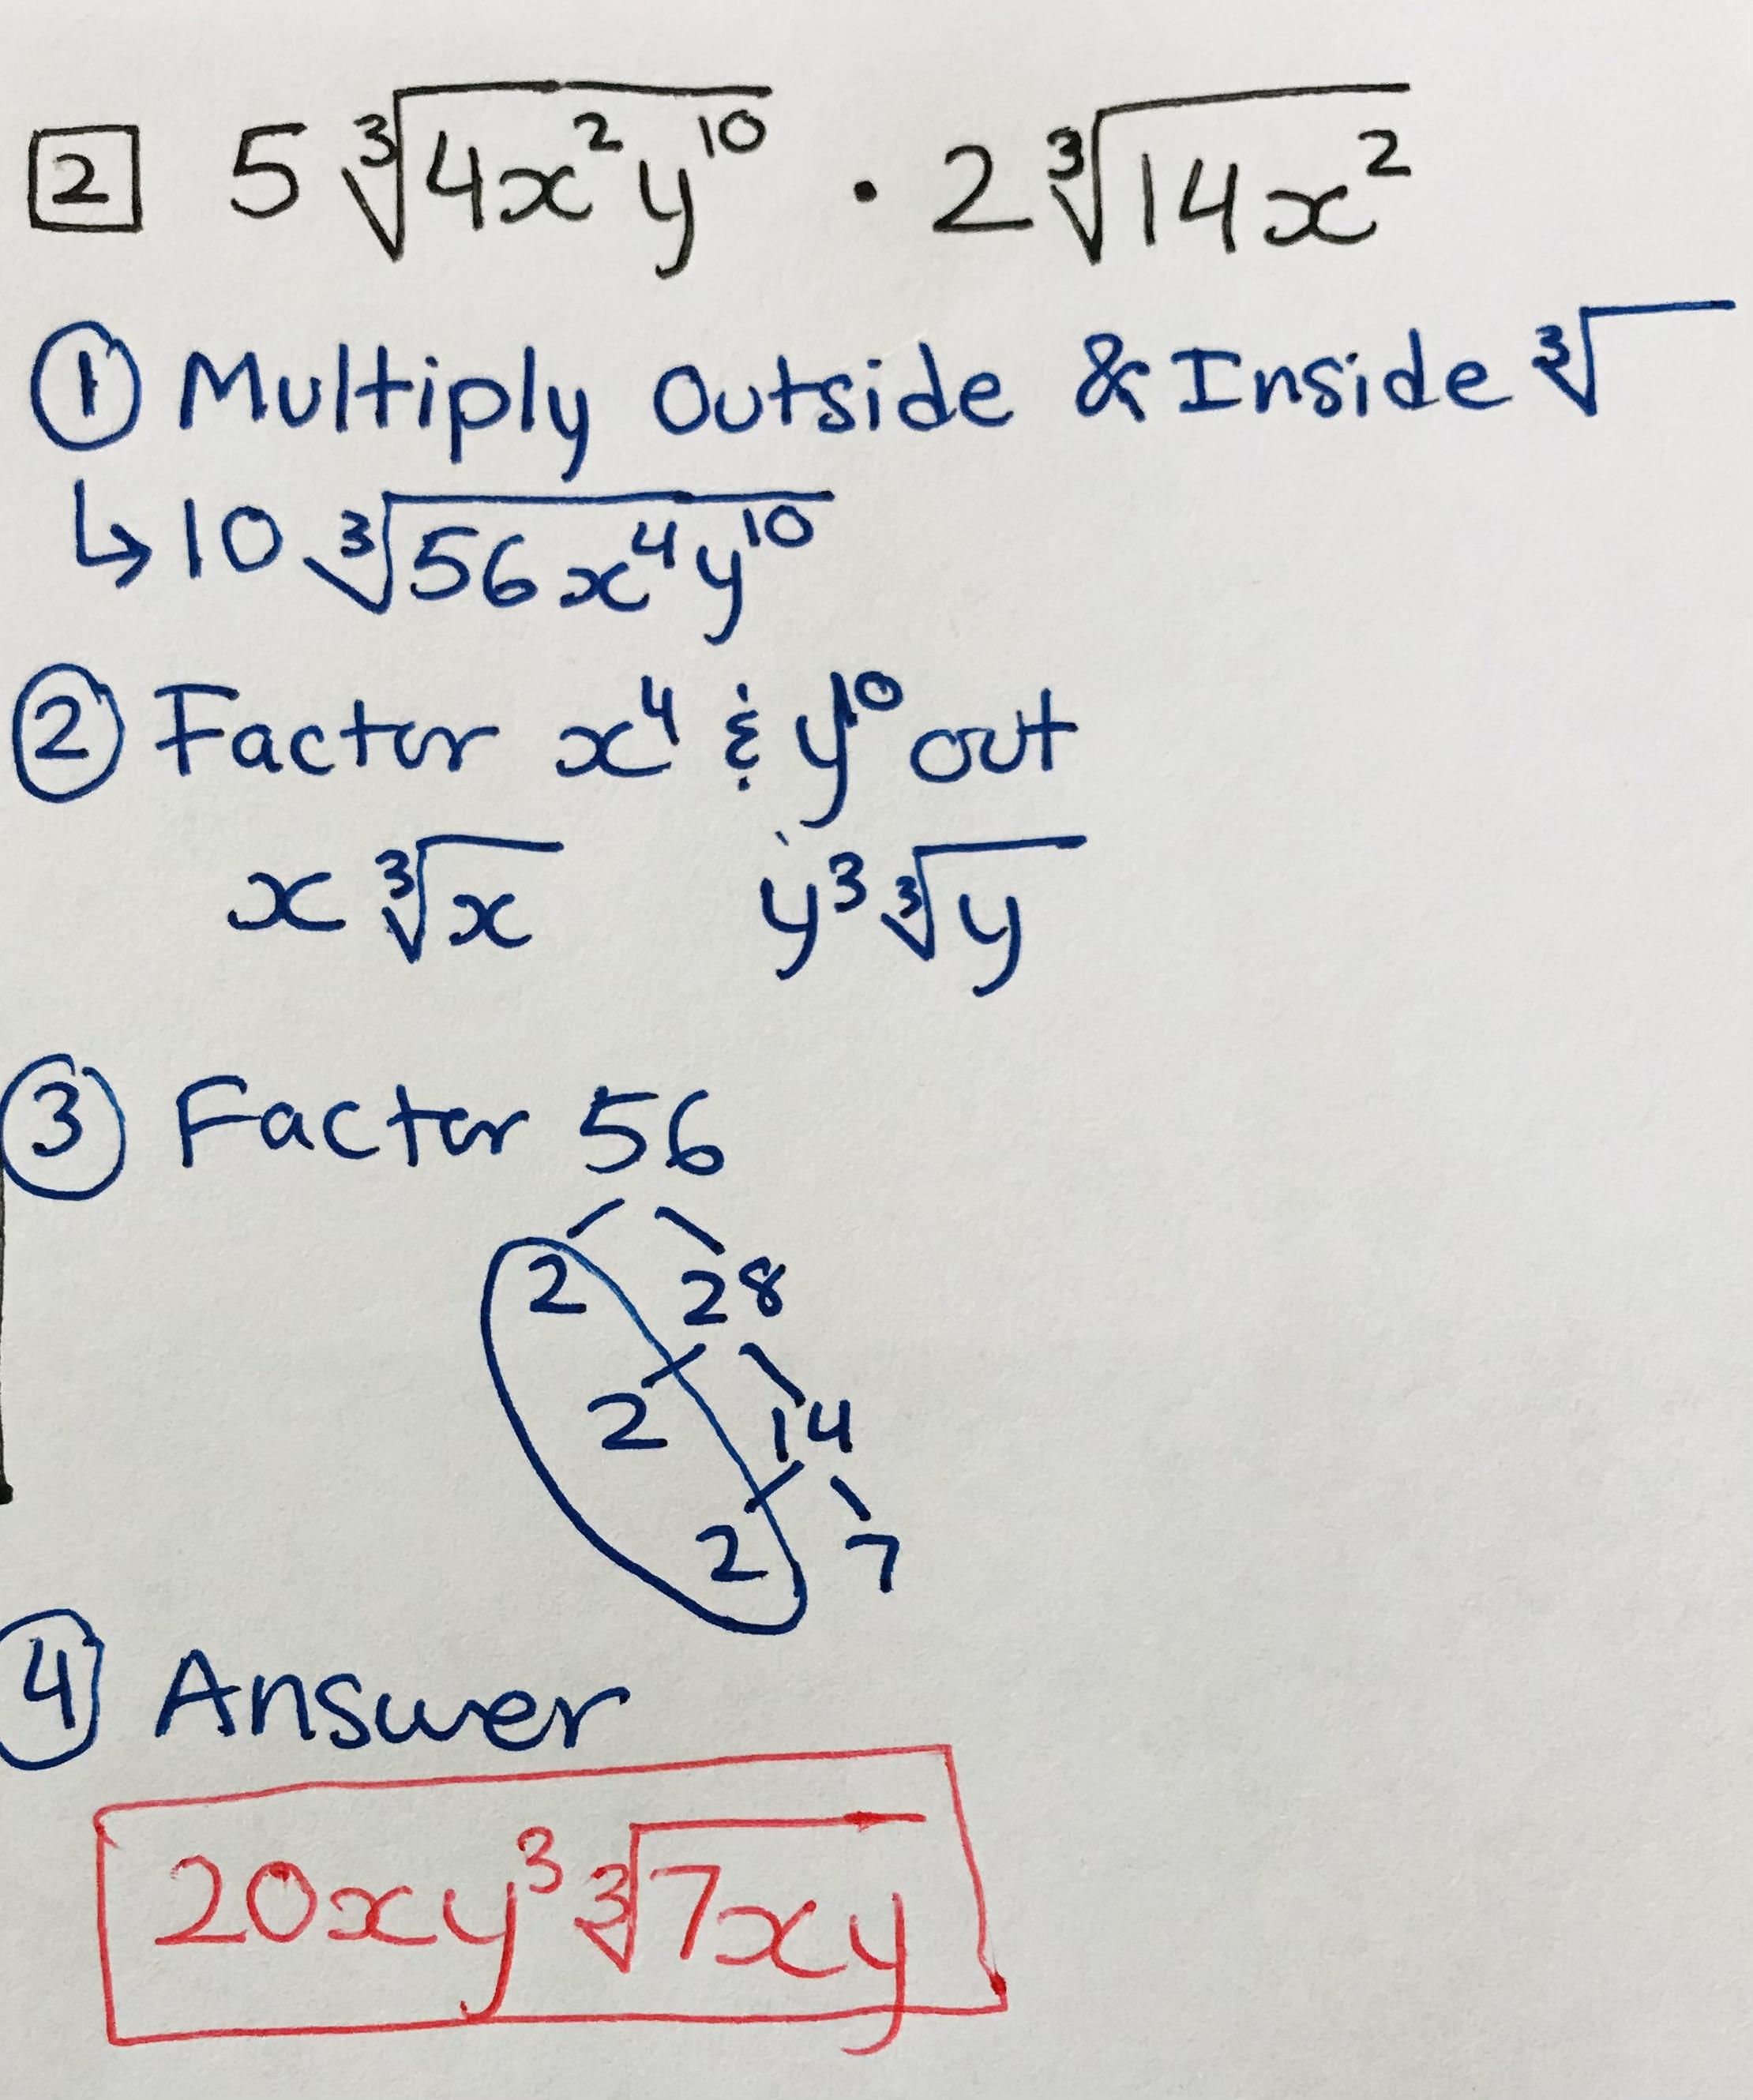 2 5∛(4x²y¹⁰) · 2∛(14x²)
① Multiply Outside & Inside ∛
↳ 10 ∛(56x⁴y¹⁰)
② Factor x⁴ & y¹⁰ out
x∛x y³∛y
③ Factor 56
2 28
2 14
2 7
④ Answer
20xy³∛(7xy)